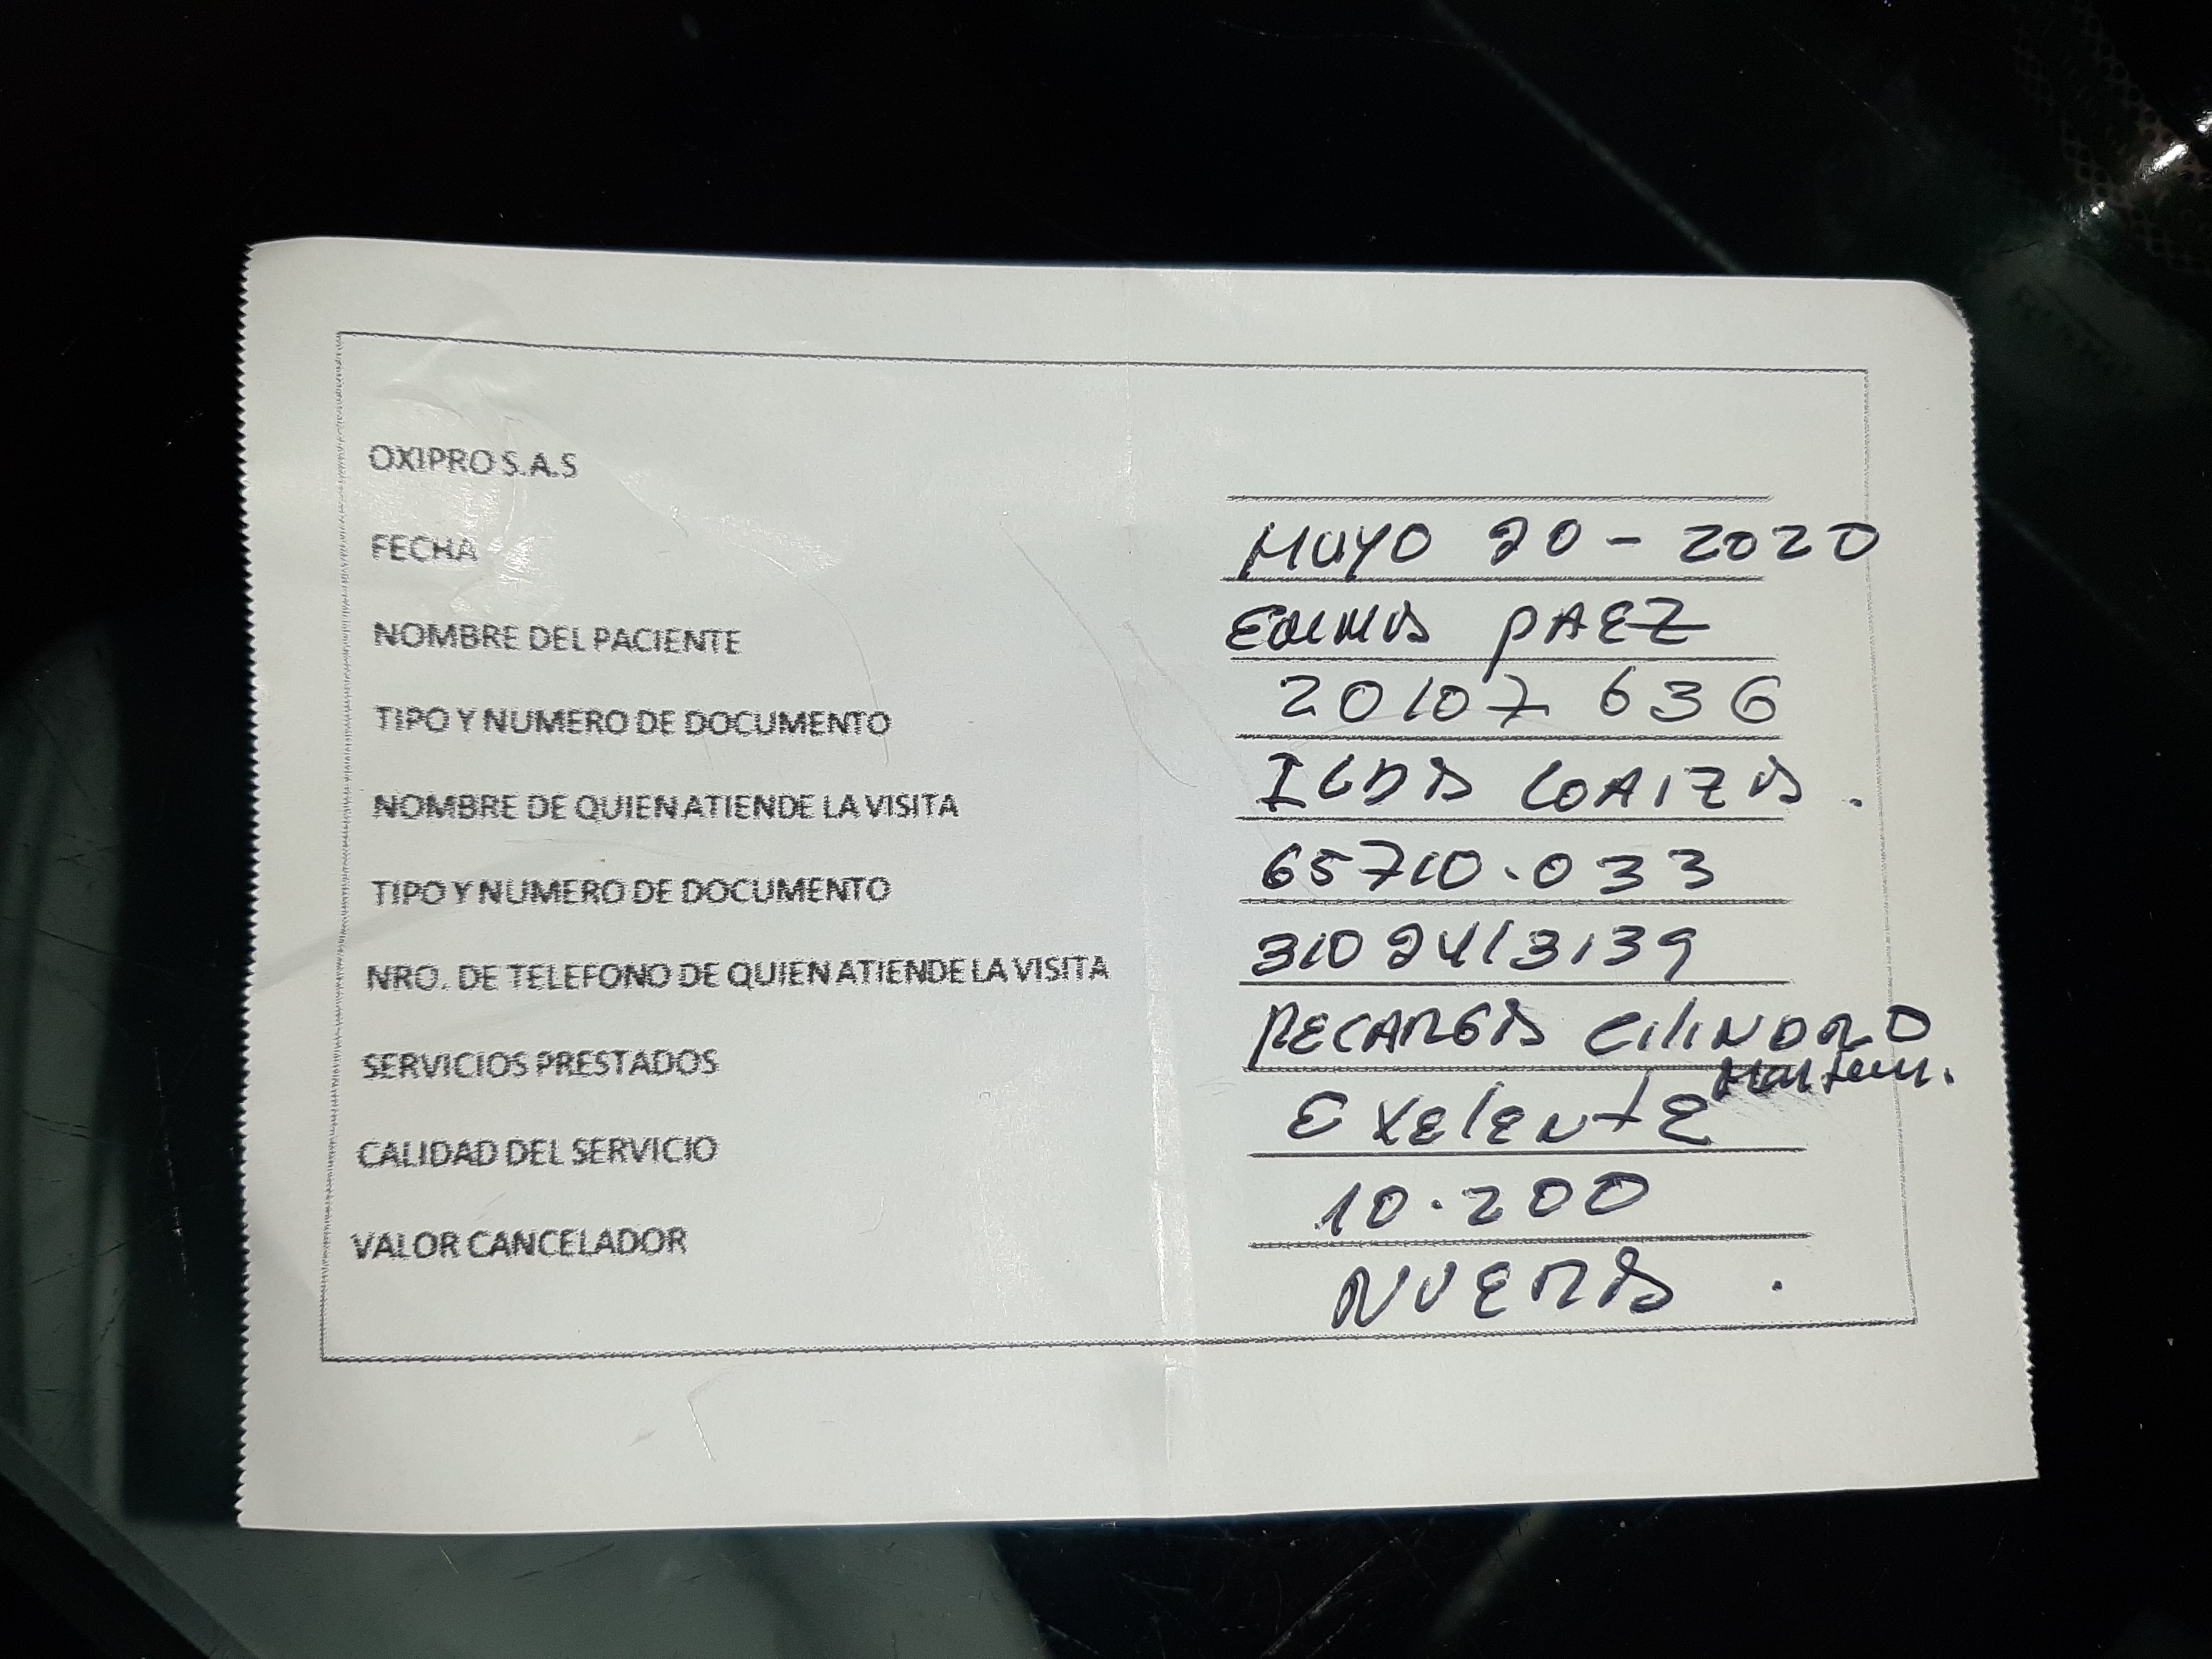 OXIPRO S.A.S
FECHA MAYO 20-2020
NOMBRE DEL PACIENTE PAEZ
TIPO Y NUMERO DE DOCUMENTO 20107 636
NOMBRE DE QUIEN ATIENDE LA VISITA ILDA LOAIZA.
TIPO Y NUMERO DE DOCUMENTO 65710.033
NRO. DE TELEFONO DE QUIEN ATIENDE LA VISITA 310 2413139
SERVICIOS PRESTADOS RECARGA CILINDRO
CALIDAD DEL SERVICIO EXELENTE
VALOR CANCELADOR 10.200
NUERA.